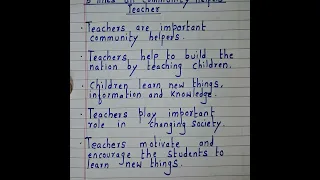 5 lines on Community Helpers
Teacher
· Teachers are important
community helpers.
· Teachers help to build the
nation by teaching children.
· Children learn new things,
information and knowledge.
· Teachers play important
role in changing society.
· Teachers motivate and
encourage the students to
learn new things.